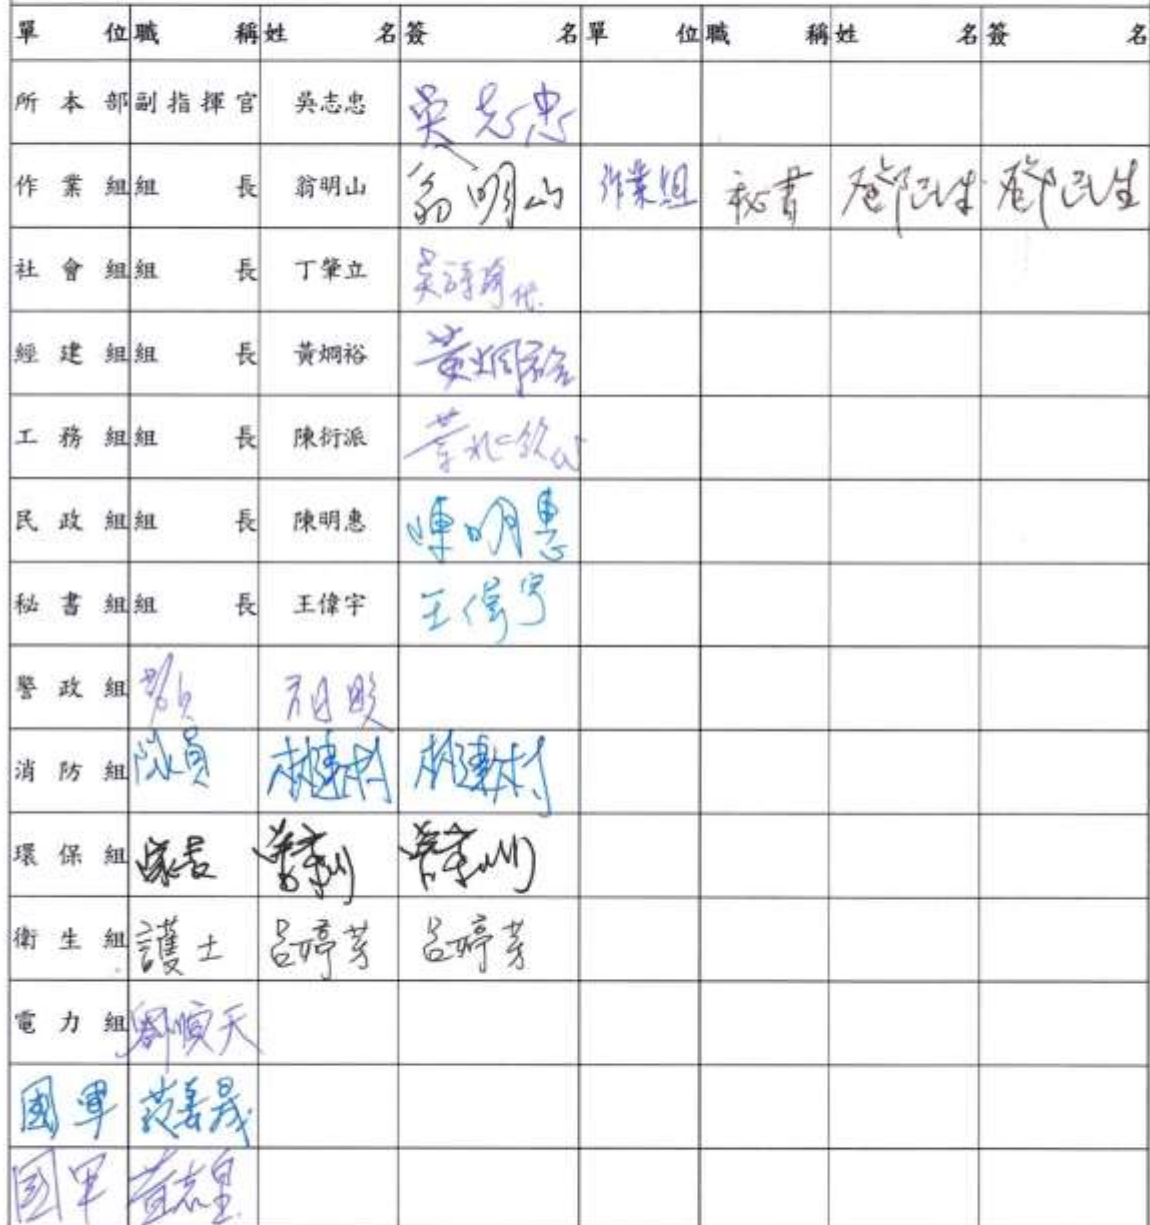 單位 職稱 姓名 簽名 單位 職稱 姓名 簽名
所本部 副指揮官 吳志忠 吳志忠
作業組 組長 翁明山 翁明山 作業組 秘書 鄧民生 鄧民生
社會組 組長 丁肇立 代
經建組 組長 黃炯裕 黃炯裕
工務組 組長 陳衍派 代
民政組 組長 陳明惠 陳明惠
秘書組 組長 王偉宇 王偉宇
警政組
消防組 隊員
環保組
衛生組 護士 呂婷芳 呂婷芳
電力組 劉順天
國軍 范善晟
國軍 黃志皇